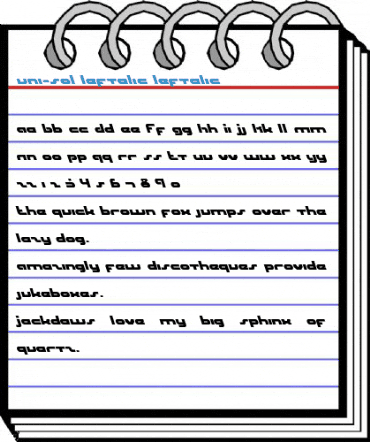 uni-sol leftalic leftalic
aa bb cc dd ee ff gg hh ii jj kk ll mm
nn oo pp qq rr ss tt uu vv ww xx yy
zz 1 2 3 4 5 6 7 8 9 0
the quick brown fox jumps over the
lazy dog.
amazingly few discotheques provide
jukeboxes.
jackdaws love my big sphinx of
quartz.